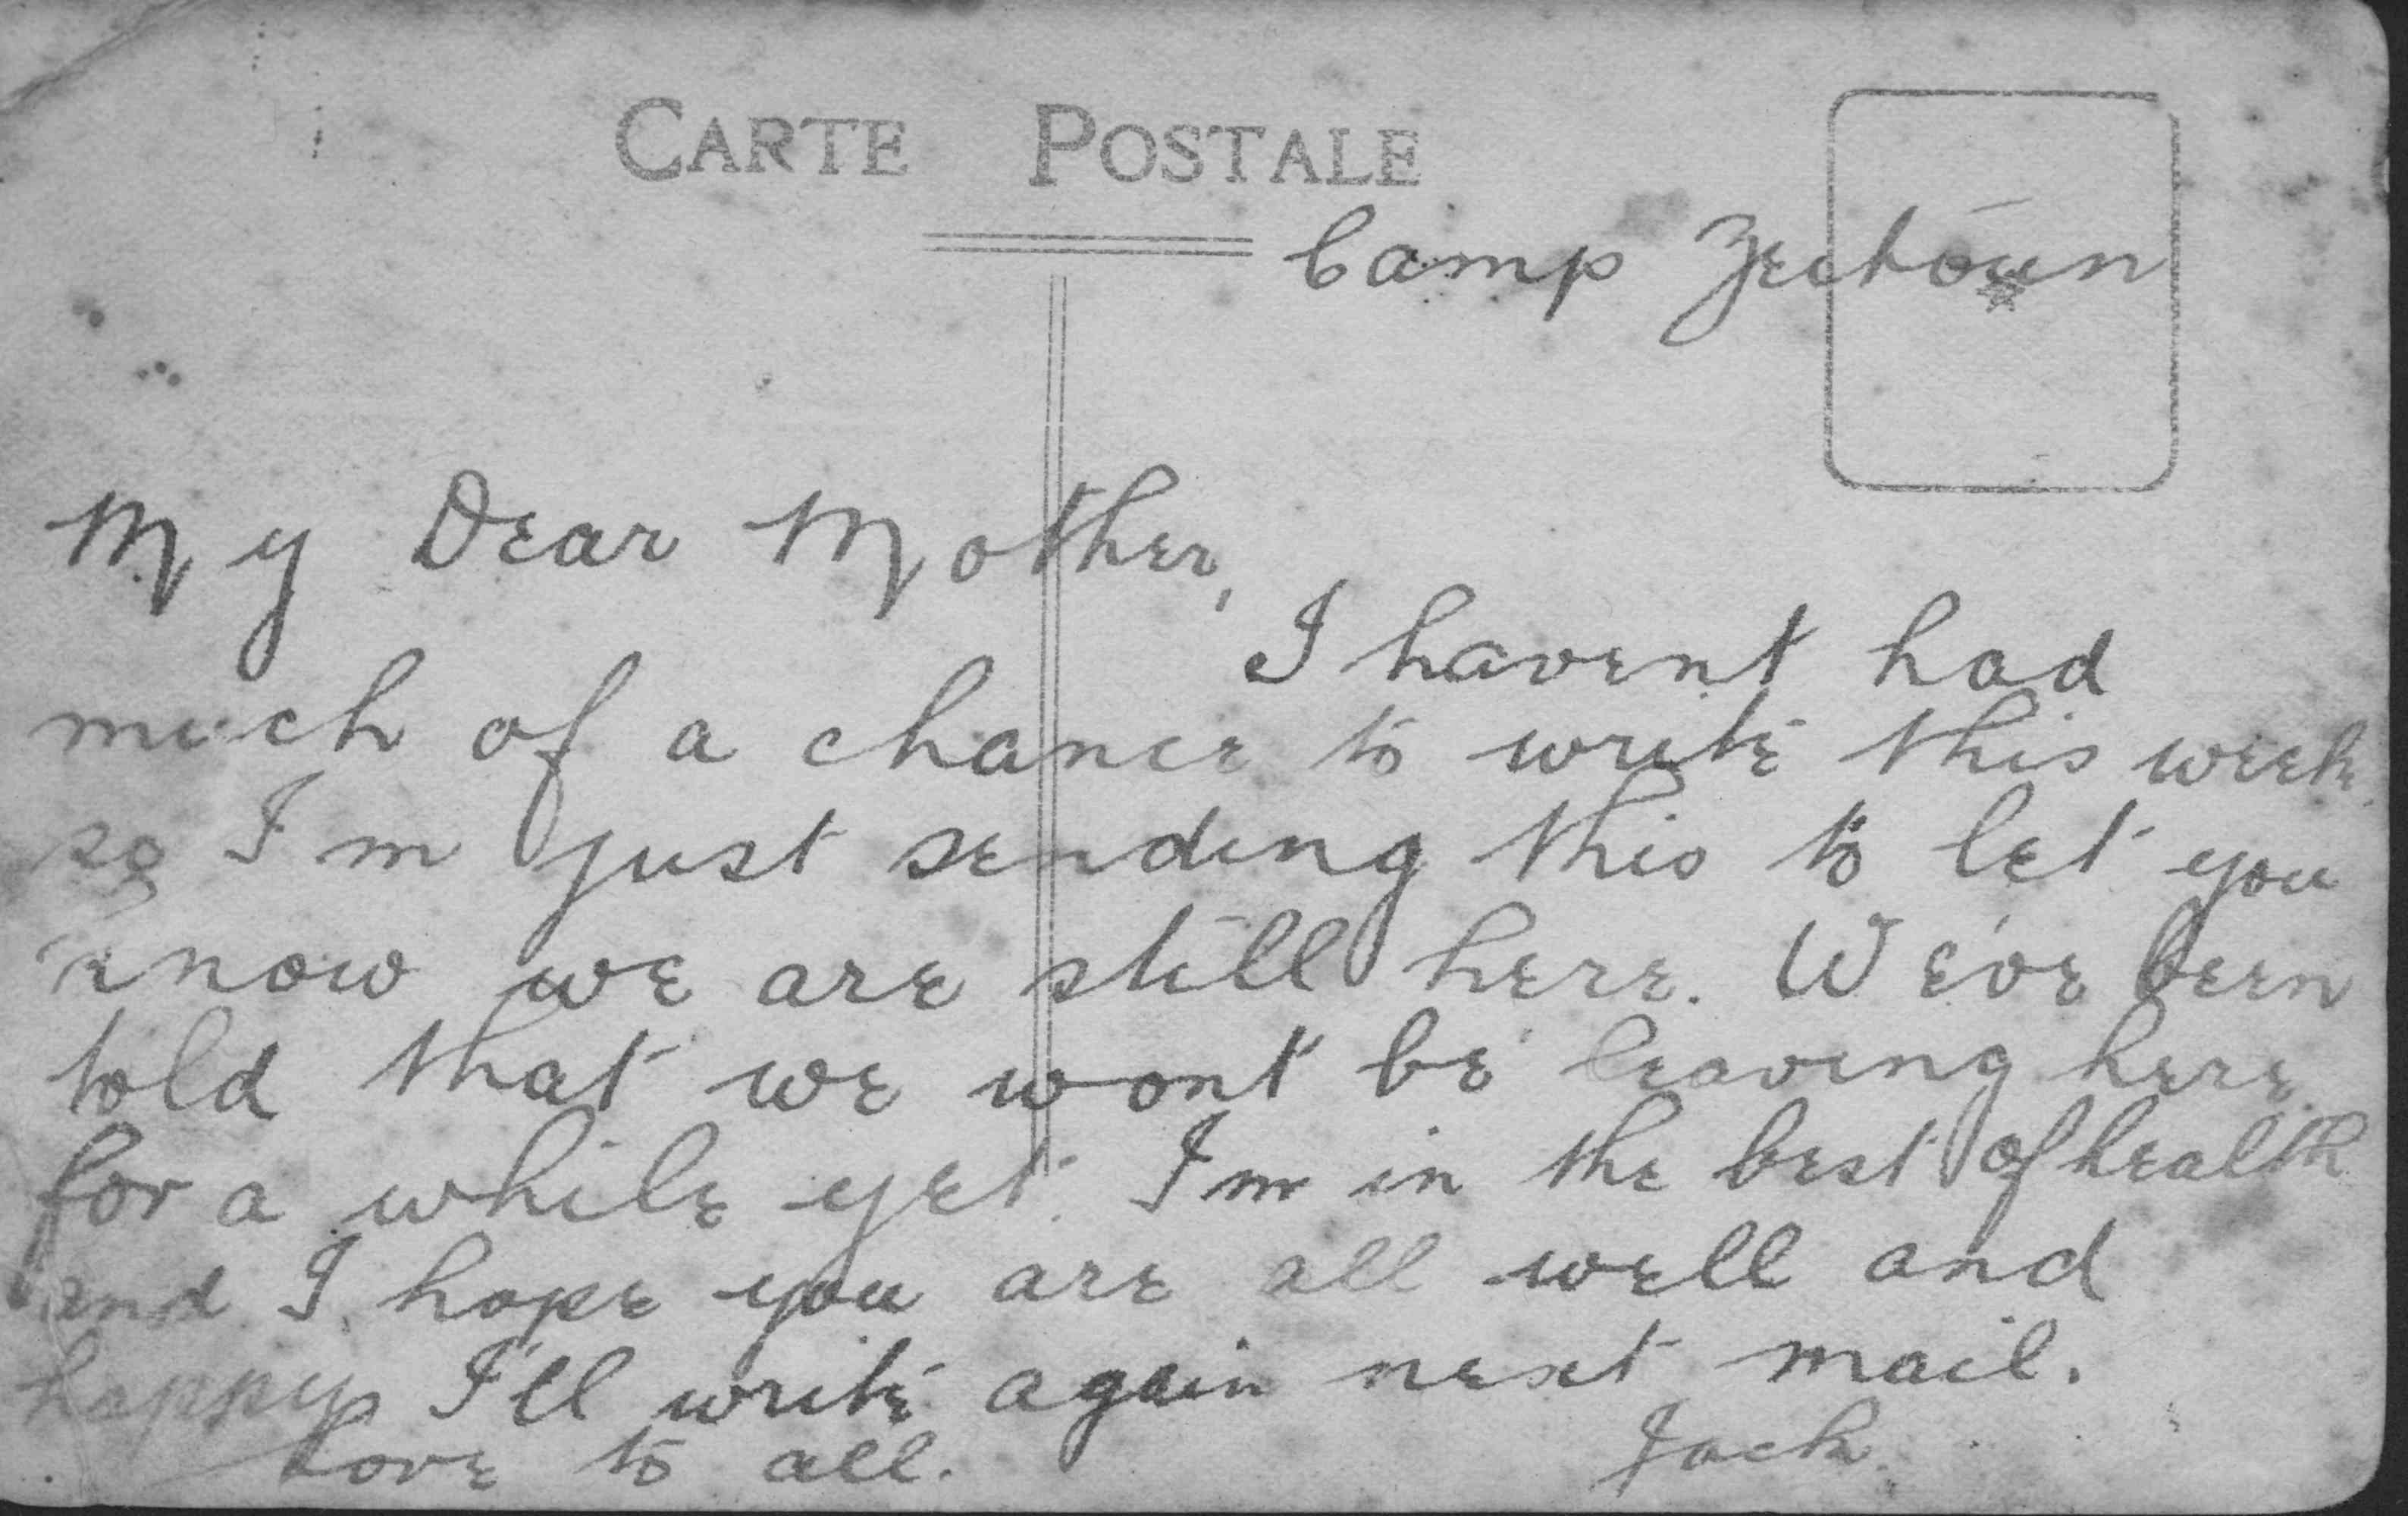 CARTE POSTALE
Camp Zeitoun
My Dear Mother,
I havent had
much of a chance to write this week
so I'm just sending this to let you
know we are still here. We've been
told that we wont be leaving here
for a while yet. I'm in the best of health
and I hope you are all well and
happy I'll write again next mail.
Love to all. Jack.